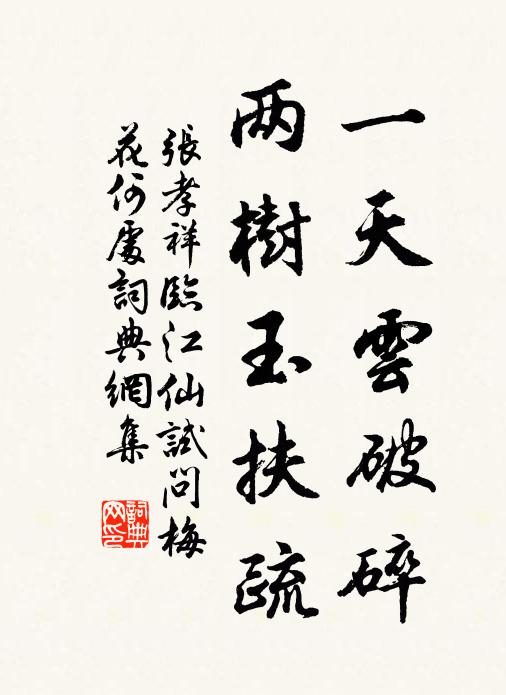 一天雲破碎
两樹玉扶疏
張孝祥臨江仙試問梅
花何處詞典網集
詞典網印